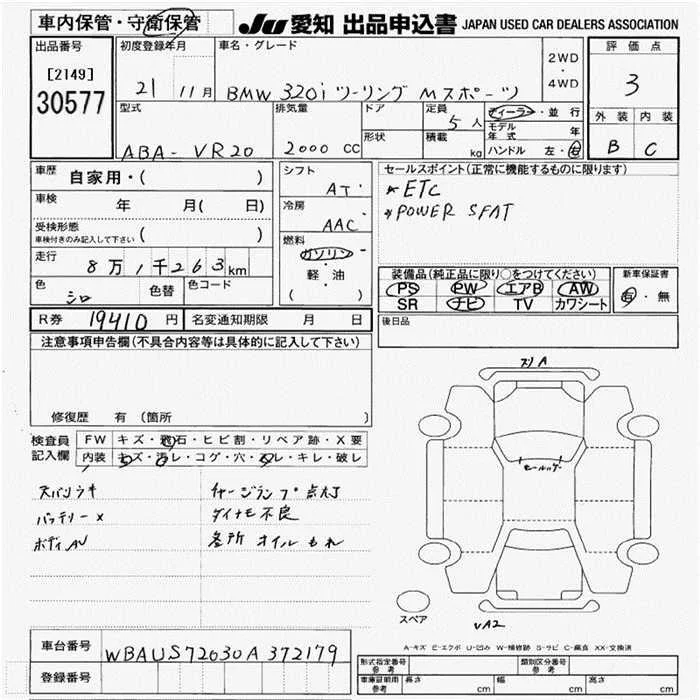 車内保管・守衛保管
JU 愛知 出品申込書 JAPAN USED CAR DEALERS ASSOCIATION
出品番号
[2149]
30577
初度登録年月
21 11月
車名・グレード
BMW 320i ツーリング Mスポーツ
2WD
・
4WD
評価点
3
外装 内装
B C
型式
ABA-VR20
排気量
2000 CC
ドア
形状
定員
5人
積載
kg
ディーラー・並行
モデル年式 年
ハンドル 左・右
車歴
自家用・( )
車検
年 月( 日)
受検形態
車検付きのみ記入して下さい ( )
走行
8万1千263km
色
シロ
色替
色コード
シフト
AT
冷房
AAC
燃料
ガソリン
・
軽・油
( )
セールスポイント(正常に機能するものに限ります)
*ETC
*POWER SEAT
装備品(純正品に限り○をつけてください)
PS PW エアB AW
SR ナビ TV カワシート
新車保証書
有・無
R券 19410 円
名変通知期限 月 日
後日品
注意事項申告欄(不具合内容等は具体的に記入して下さい)
修復歴 有 (箇所 )
検査員
記入欄
FW キズ・飛石・ヒビ割・リペア跡・X要
内装 キズ・汚レ・コゲ・穴・スレ・キレ・破レ
スペアキ
バッテリーX
ボディAU
チャージランプ点灯
ダイナモ不良
各所オイルもれ
スリA
モールハゲ
スペア
VA2
A-キズ E-エクボ U-凹み W-補修跡 S-サビ C-腐食 XX-交換済
車台番号
WBAUS72030A372179
登録番号
形式指定番号 参考
類別区分番号 参考
車庫証明用 参考
長さ cm
幅 cm
高さ cm